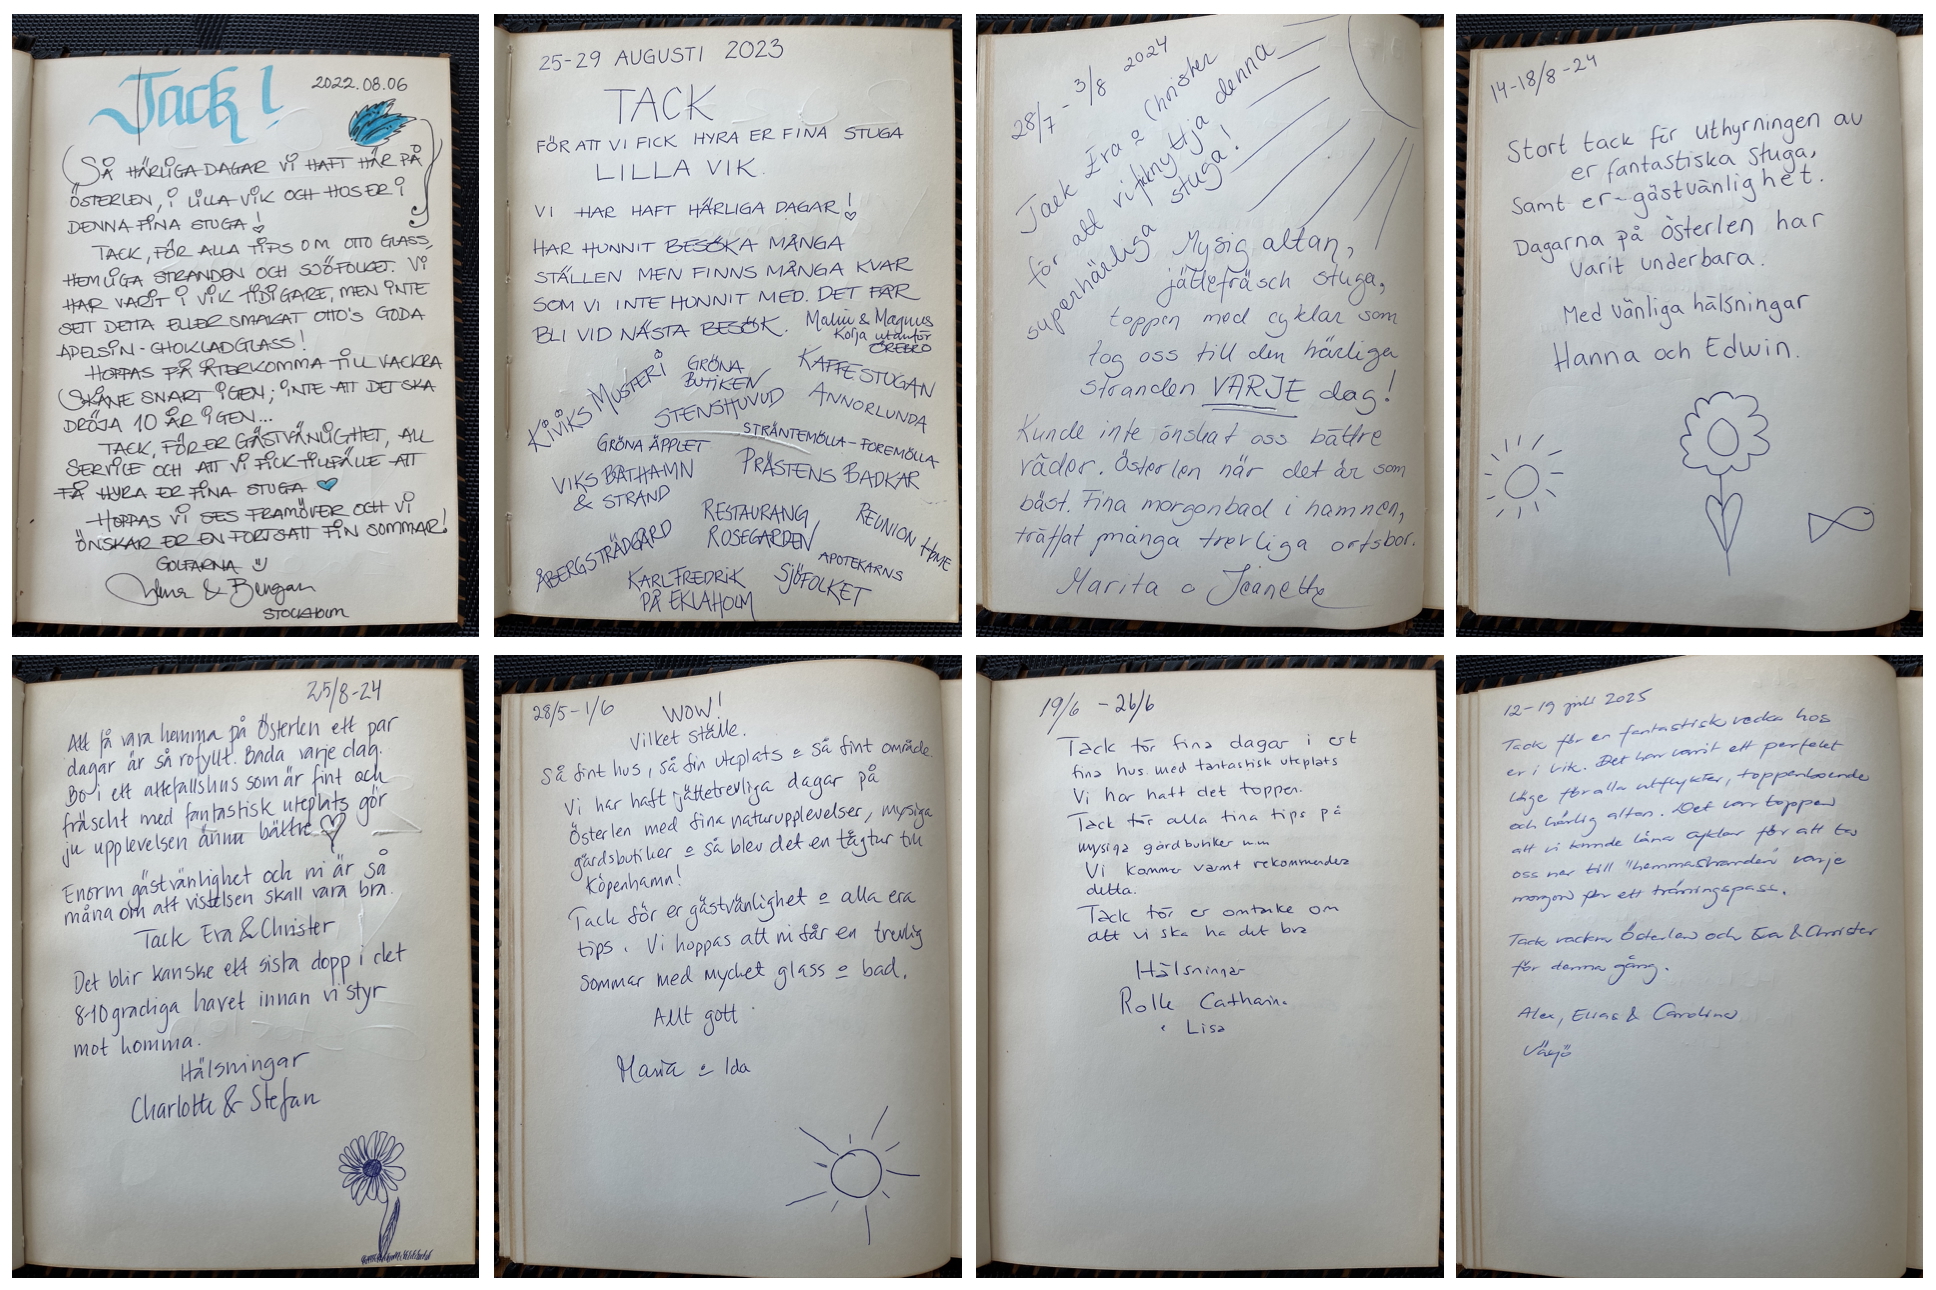 Tack!
2022.08.06
SÅ HÄRLIGA DAGAR VI HAFT HÄR PÅ
ÖSTERLEN, I LILLA VIK OCH HOS ER I
DENNA FINA STUGA!
TACK, FÖR ALLA TIPS OM OTTO GLASS,
HEMLIGA STRANDEN OCH SJÖFOLKET. VI
HAR VARIT I VIK TIDIGARE, MEN INTE
SETT DETTA ELLER SMAKAT OTTO'S GODA
APELSIN-CHOKLADGLASS!
HOPPAS PÅ ÅTERKOMMA TILL VACKRA
SKÅNE SNART IGEN; INTE ATT DET SKA
DRÖJA 10 ÅR IGEN...
TACK, FÖR ER GÄSTVÄNLIGHET, ALL
SERVICE OCH ATT VI FICK TILLFÄLLE ATT
FÅ HYRA ER FINA STUGA
HOPPAS VI SES FRAMÖVER OCH VI
ÖNSKAR ER EN FORTSATT FIN SOMMAR!
GOLFARNA
& Bengan
STOCKHOLM
25-29 AUGUSTI 2023
TACK
FÖR ATT VI FICK HYRA ER FINA STUGA
LILLA VIK.
VI HAR HAFT HÄRLIGA DAGAR!
HAR HUNNIT BESÖKA MÅNGA
STÄLLEN MEN FINNS MÅNGA KVAR
SOM VI INTE HUNNIT MED. DET FÅR
BLI VID NÄSTA BESÖK.
Malin & Magnus
Kolja utanför
ÖREBRO
KIVIKS MUSTERI
GRÖNA
BUTIKEN
KAFFESTUGAN
ANNORLUNDA
STENSHUVUD
GRÖNA ÄPPLET
STRÄNTEMÖLLA-FOREMÖLLA
VIKS BÅTHAMN
& STRAND
PRÄSTENS BADKAR
RESTAURANG
ROSEGARDEN
REUNION HOME
ÅBERGSTRÄDGÅRD
APOTEKARNS
KARLFREDRIK
PÅ EKLAHOLM
SJÖFOLKET
28/7 - 3/8 2024
Tack Era o Christer
för att vi fick nyttja denna
superhärliga stuga!
Mysig altan,
jättefräsch stuga,
toppen med cyklar som
tog oss till den härliga
stranden VARJE dag!
Kunde inte önskat oss bättre
väder. Österlen när det är som
bäst. Fina morgonbad i hamnen,
träffat många trevliga ortsbor.
Marita o Jeanette
14-18/8-24
Stort tack för uthyrningen av
er fantastiska stuga,
Samt er gästvänlighet.
Dagarna på Österlen har
varit underbara.
Med vänliga hälsningar
Hanna och Edwin.
25/8-24
Att få vara hemma på Österlen ett par
dagar är så rofyllt. Bada varje dag.
Bo i ett attefallshus som är fint och
fräscht med fantastisk uteplats gör
ju upplevelsen ännu bättre
Enorm gästvänlighet och ni är så
måna om att vistelsen skall vara bra.
Tack Era & Christer
Det blir kanske ett sista dopp i det
8-10 gradiga havet innan vi styr
mot homma.
Hälsningar
Charlotte & Stefan
28/5-1/6
WOW!
Vilket ställe.
Så fint hus, så fin uteplats o så fint område.
Vi har haft jättetrevliga dagar på
Österlen med fina naturupplevelser, mysiga
gårdsbutiker o så blev det en tågtur till
Köpenhamn!
Tack för er gästvänlighet o alla era
tips. Vi hoppas att ni får en trevlig
sommar med mycket glass o bad.
Allt gott
Maria o Ida
19/6 - 26/6
Tack för fina dagar i ert
fina hus. med fantastisk uteplats
Vi har haft det toppen.
Tack för alla fina tips på
mysiga gårdbutiker m.m
Vi kommer varmt rekommendera
detta.
Tack för er omtanke om
att vi ska ha det bra
Hälsningar
Rolle Catharina
Lisa
12-19 juli 2025
Tack för en fantastisk vecka hos
er i Vik. Det har varit ett perfekt
läge för alla utflykter, toppenboende
och härlig altan. Det var toppen
att vi kunde låna cyklar för att ta
oss ner till "hemmastranden" varje
morgon för ett träningspass.
Tack vackra Österlen och Eva & Christer
för denna gång.
Alex, Elias & Carolina
Växjö